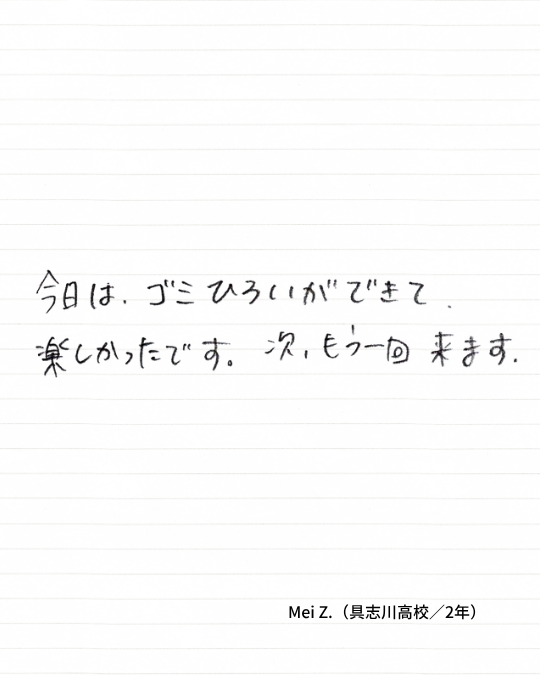 今日は、ゴミひろいができて、
楽しかったです。次、もう一回 来ます。
Mei Z.（具志川高校／2年）